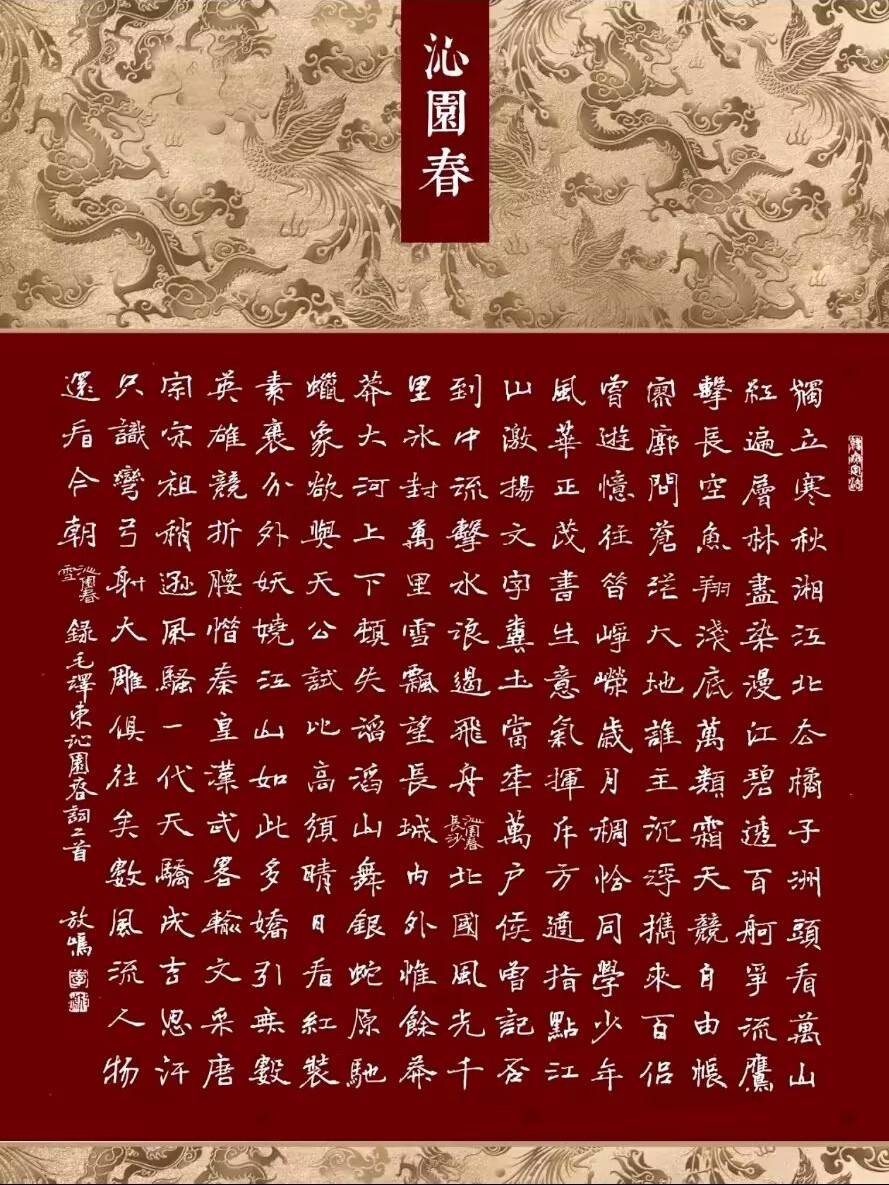 沁園春
獨立寒秋湘江北去橘子洲頭看萬山
紅遍層林盡染漫江碧透百舸爭流鷹
擊長空魚翔淺底萬類霜天競自由悵
寥廓問蒼茫大地誰主沉浮攜來百侶
曾遊憶往昔崢嶸歲月稠恰同學少年
風華正茂書生意氣揮斥方遒指點江
山激揚文字糞土當年萬戶侯曾記否
到中流擊水浪遏飛舟沁園春長沙北國風光千
里冰封萬里雪飄望長城內外惟餘莽
莽大河上下頓失滔滔山舞銀蛇原馳
蠟象欲與天公試比高須晴日看紅裝
素裹分外妖嬈江山如此多嬌引無數
英雄競折腰惜秦皇漢武畧輸文采唐
宗宋祖稍遜風騷一代天驕成吉思汗
只識彎弓射大雕俱往矣數風流人物
還看今朝沁園春雪錄毛澤東沁園春詞二首 放鳴